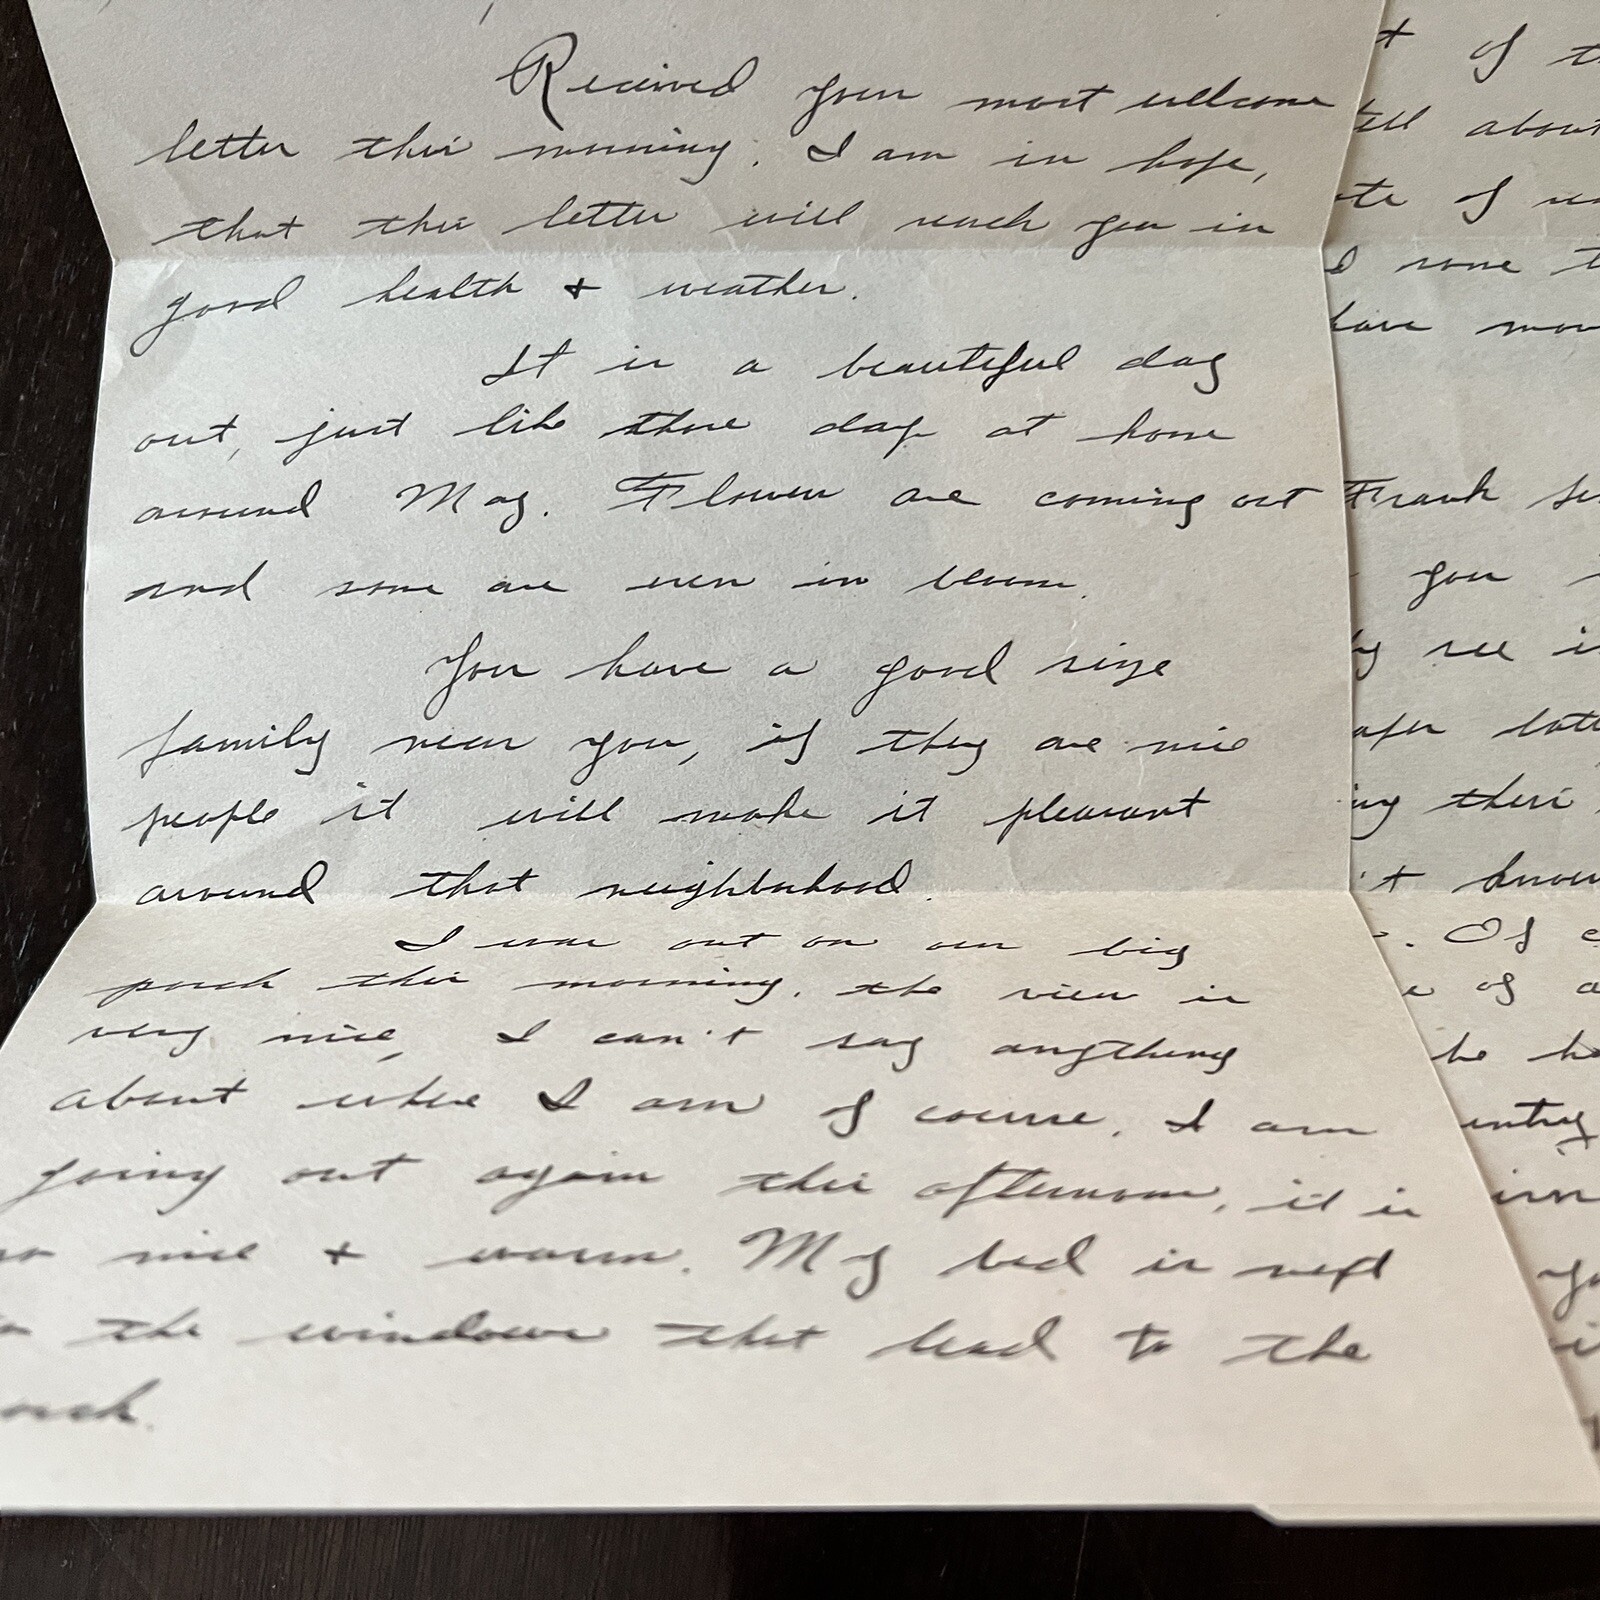 Received your most wellcome
letter this morning. I am in hope,
that this letter will reach you in
good health & weather.
It is a beautiful day
out, just like those days at home
around May. Flowers are coming out
and some are even in bloom.
You have a good size
family near you, if they are nice
people it will make it pleasant
around that neighborhood.
I was out on our big
porch this morning, the view is
very nice, I can't say anything
about where I am of course. I am
going out again this afternoon, it is
so nice & warm. My bed is next
to the windows that lead to the
porch.
of
tell about
of
some
have
Frank
you
see
ing their
't know
. Of
of a
be